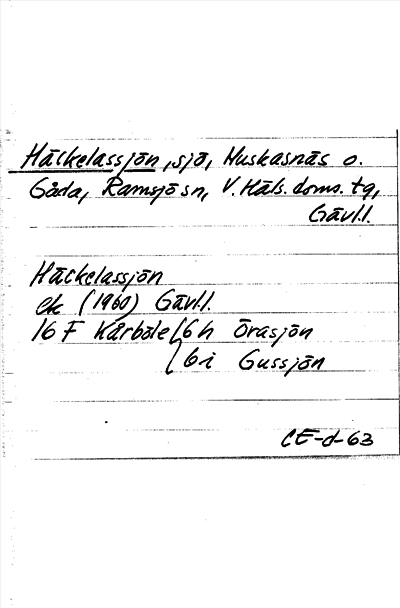 Häckelassjön, sjö, Muskasnäs o.
Gåda, Ramsjö sn, V. Häls. doms. tg,
Gävl.l.
Häckelassjön
ek (1960) Gävl.l.
16 F Kårböle 6 h Örasjön
6 i Gussjön
CE-d-63